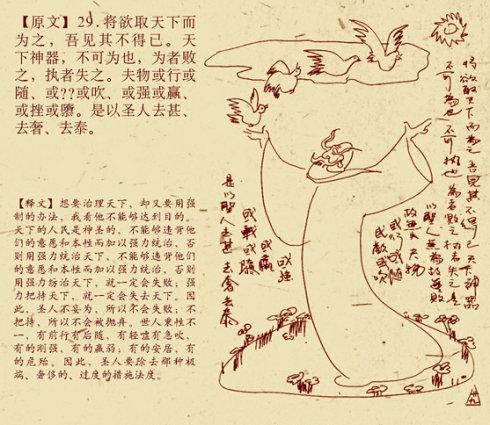 【原文】29.将欲取天下而
为之，吾见其不得已。天
下神器，不可为也，为者败
之，执者失之。夫物或行或
随、或??或吹、或强或赢、
或挫或隳。是以圣人去甚、
去奢、去泰。
【释文】想要治理天下，却又要用强
制的办法，我看他不能够达到目的。
天下的人民是神圣的，不能够违背他
们的意愿和本性而加以强力统治，否
则用强力统治天下，不能够违背他们
的意愿和本性而加以强力统治，否则
用强力纺治天下，就一定会失败；强
力把持天下，就一定会失去天下。因
此，圣人不妄为，所以不会失败；不
把持，所以不会被抛弃。世人秉性不
一，有前行有后随，有轻嘘有急吹，
有的刚强，有的羸弱；有的安居，有
的危殆。因此，圣人要除去那种极
端、奢侈的、过度的措施法度。
将欲取天下而為之吾見其不得已天下神器
不可為也不可執也為者敗之執者失之是
以聖人無為故無敗
故無失夫物
或行或隨
或吹
或强
或羸
是以聖人去甚去奢去泰